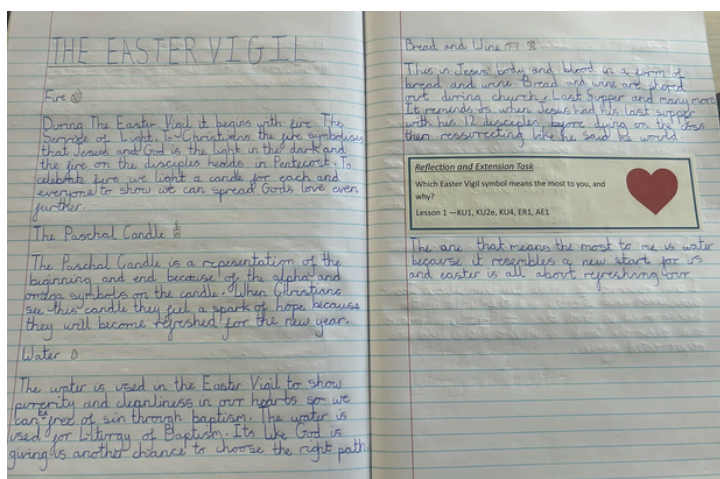 THE EASTER VIGIL
Fire
During The Easter Vigil it begins with fire The
Service of Light. To Christians the fire symbolises
that Jesus and God is the light in the dark and
the fire on the disciples heads in Pentecost. To
celebrate fire we light a candle for each and
everyone to show we can spread Gods love even
further.
The Paschal Candle
The Paschal Candle is a representation of the
beginning and end because of the alpha and
omega symbols on the candle. When Christians
see this candle they feel a spark of hope because
they will become refreshed for the new year.
Water
The water is used in the Easter Vigil to show
purerity and cleanliness in our hearts so we
can be free of sin through baptism. The water is
used for Liturgy of Baptism. Its like God is
giving us another chance to choose the right path
Bread and Wine
This is Jesus' body and blood in a form of
bread and wine. Bread and wine are shared
out during church, Last Supper and many more
It reminds us when Jesus had his last supper
with his 12 disciples before dying on the cross
then ressurecting like he said he would.
Reflection and Extension Task
Which Easter Vigil symbol means the most to you, and
why?
Lesson 1 —KU1, KU2e, KU4, ER1, AE1
The one that means the most to me is water
because it resembles a new start for us
and easter is all about refreshing our